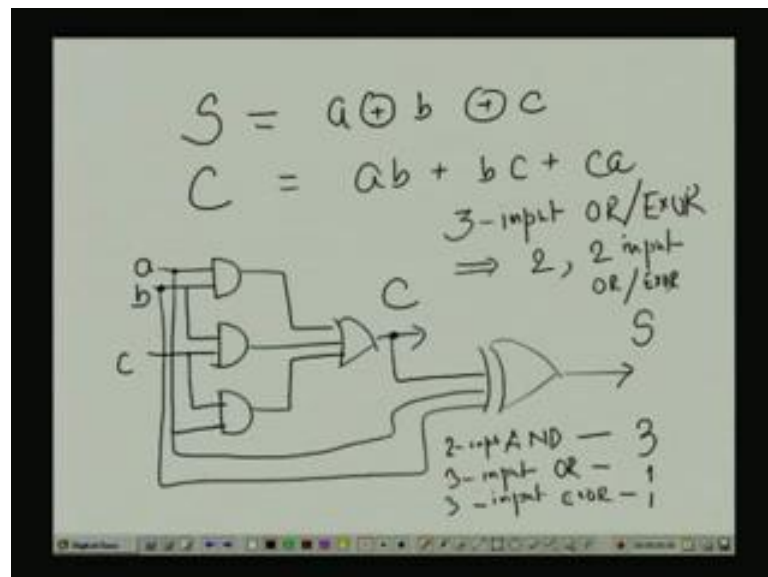 S = a ⊕ b ⊕ c
C = ab + bc + ca
3-input OR/EXOR
⇒ 2, 2 input
OR/EXOR
a
b
c
C
S
2-inp AND — 3
3-input OR - 1
3-input EXOR - 1